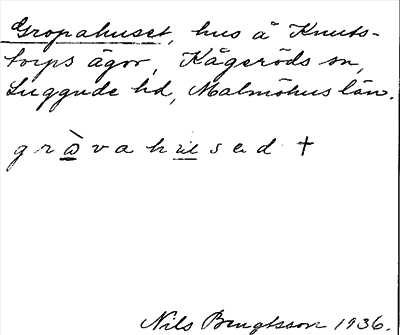 Gropahuset, hus å Knuts-
torps ägor, Kågeröds sn,
Luggude hd, Malmöhus län.
Nils Bengtsson 1936.